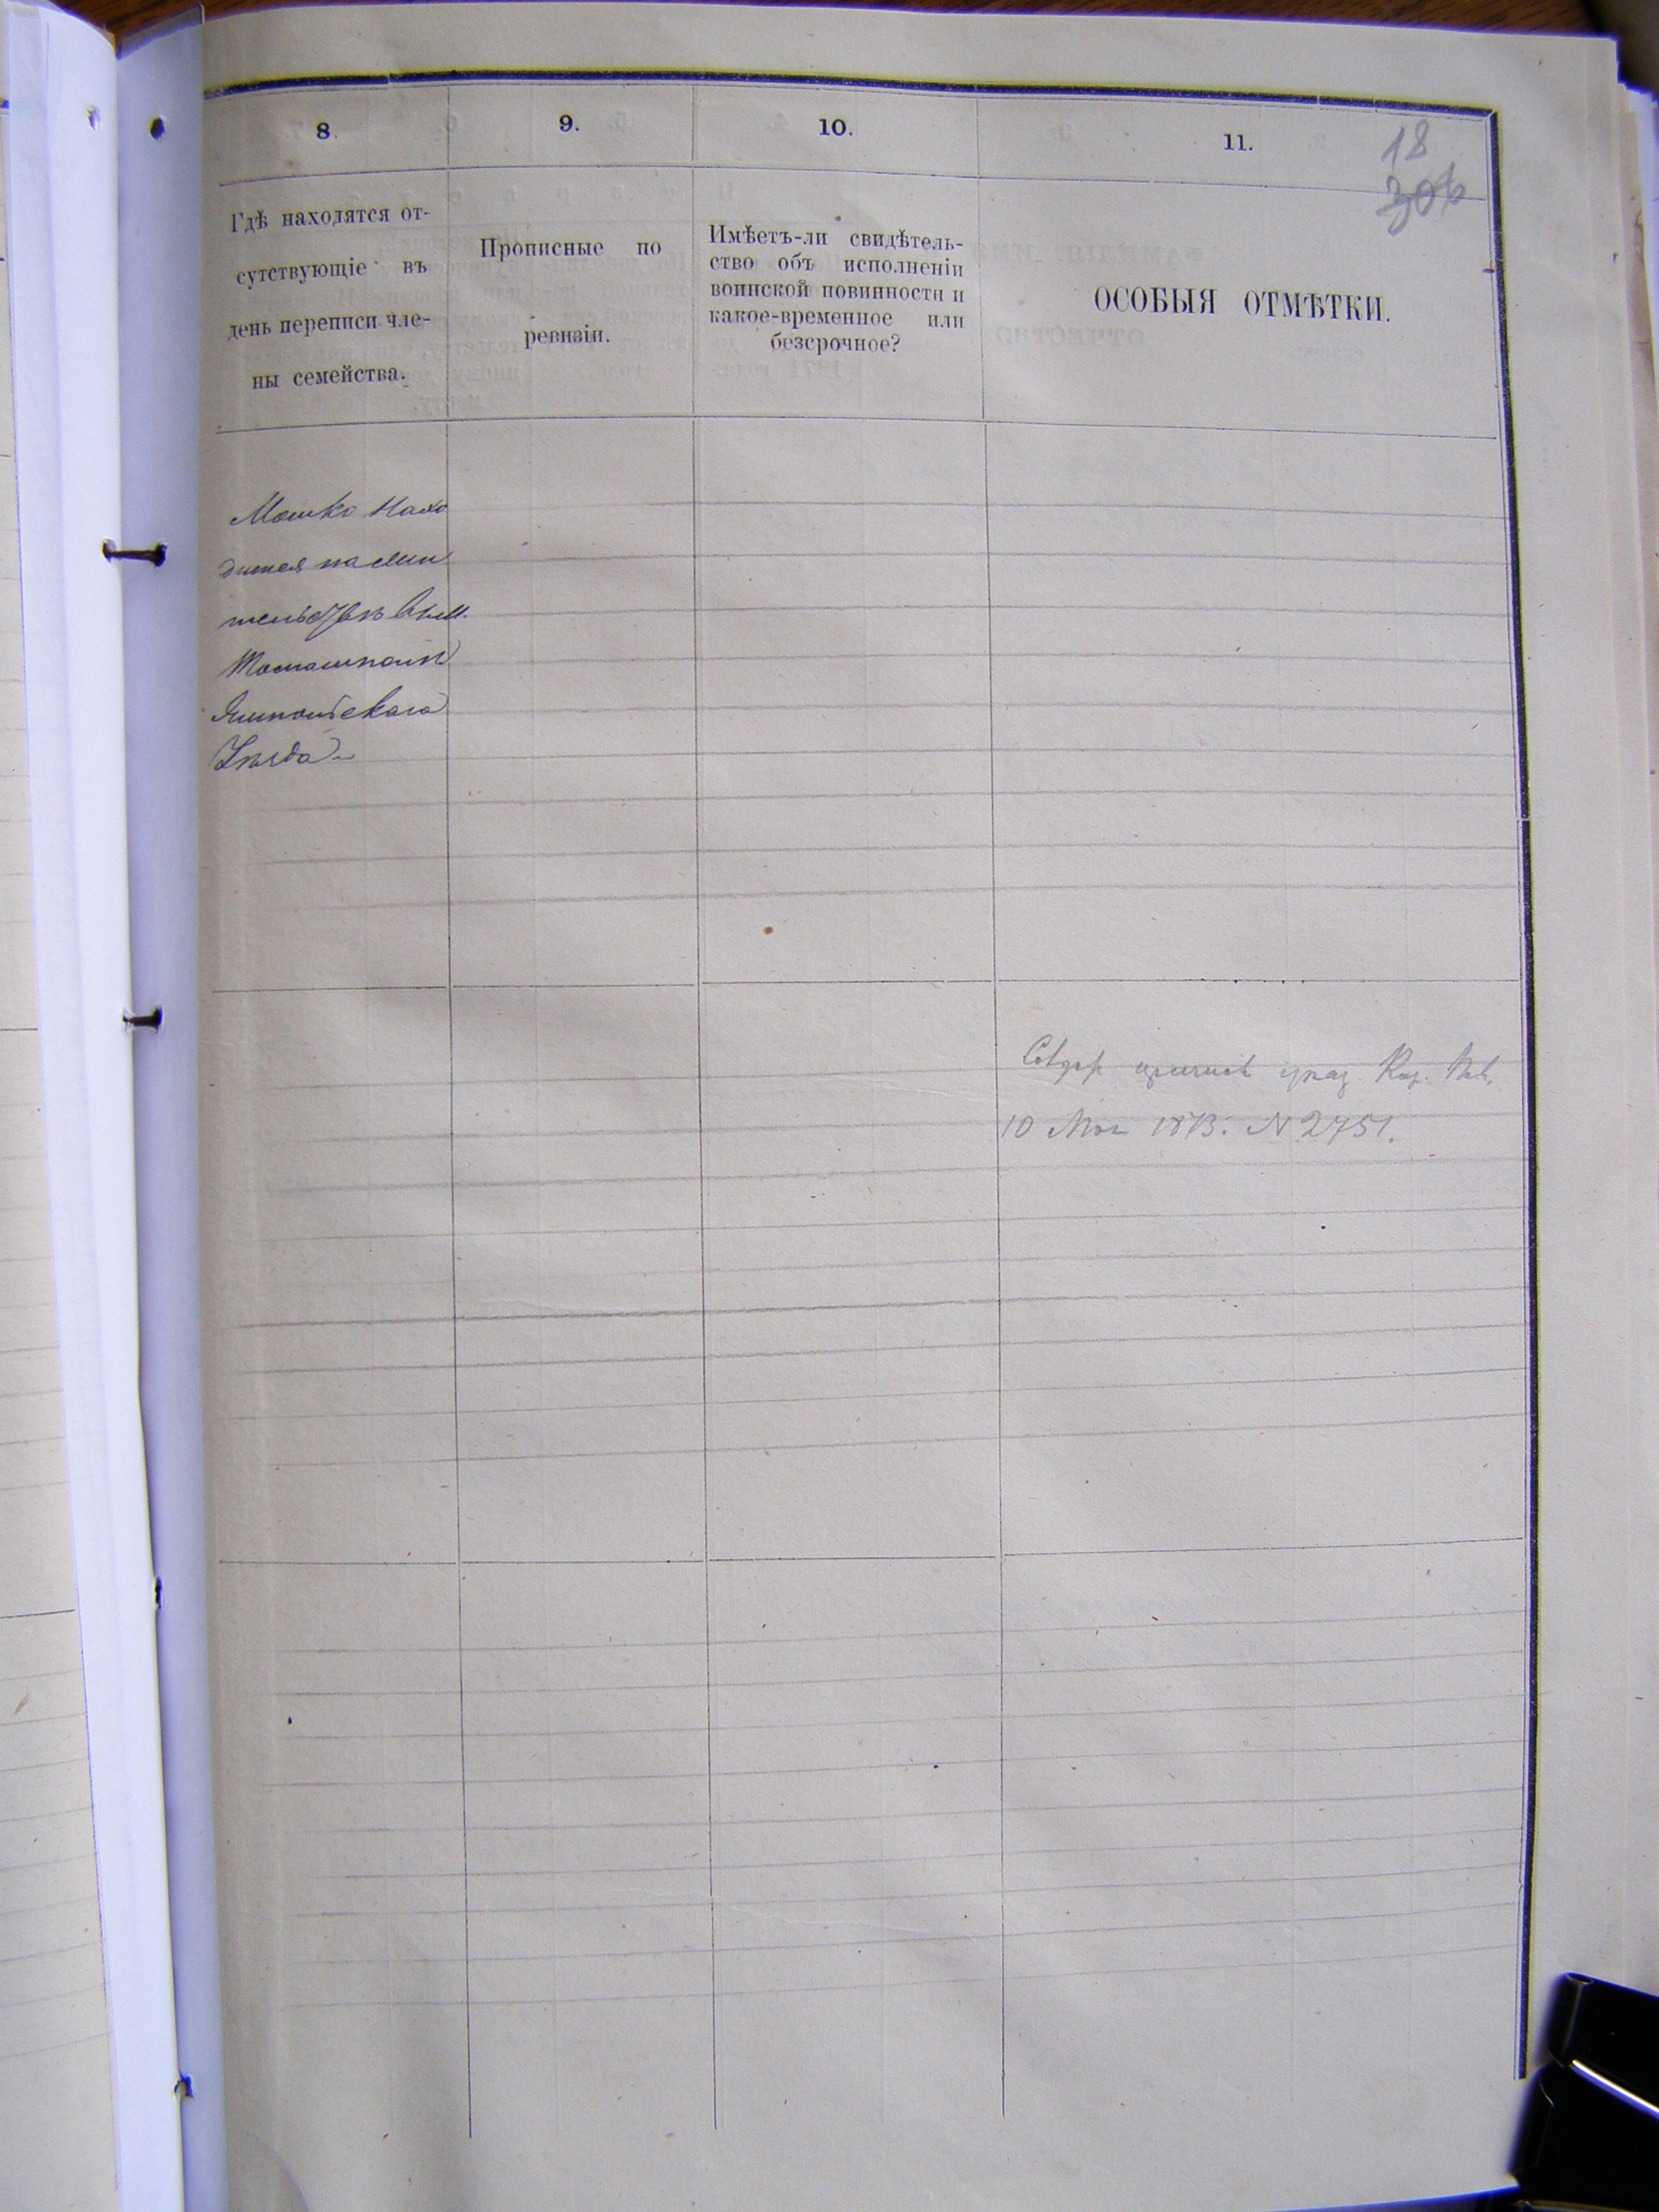 8.
9.
10.
11.
18
306
Гдѣ находятся от-
сутствующіе въ
день переписи чле-
ны семейства.
Прописные по
ревизіи.
Имѣетъ-ли свидѣтель-
ство объ исполненіи
воинской повинности и
какое-временное или
безсрочное?
ОСОБЫЯ ОТМѢТКИ.
Мошко Нахо
дится на жи
тельствѣ въ м.
Томашполѣ
Ямпольскаго
Уѣзда
указ. Каз.
10 1873. N 2751.